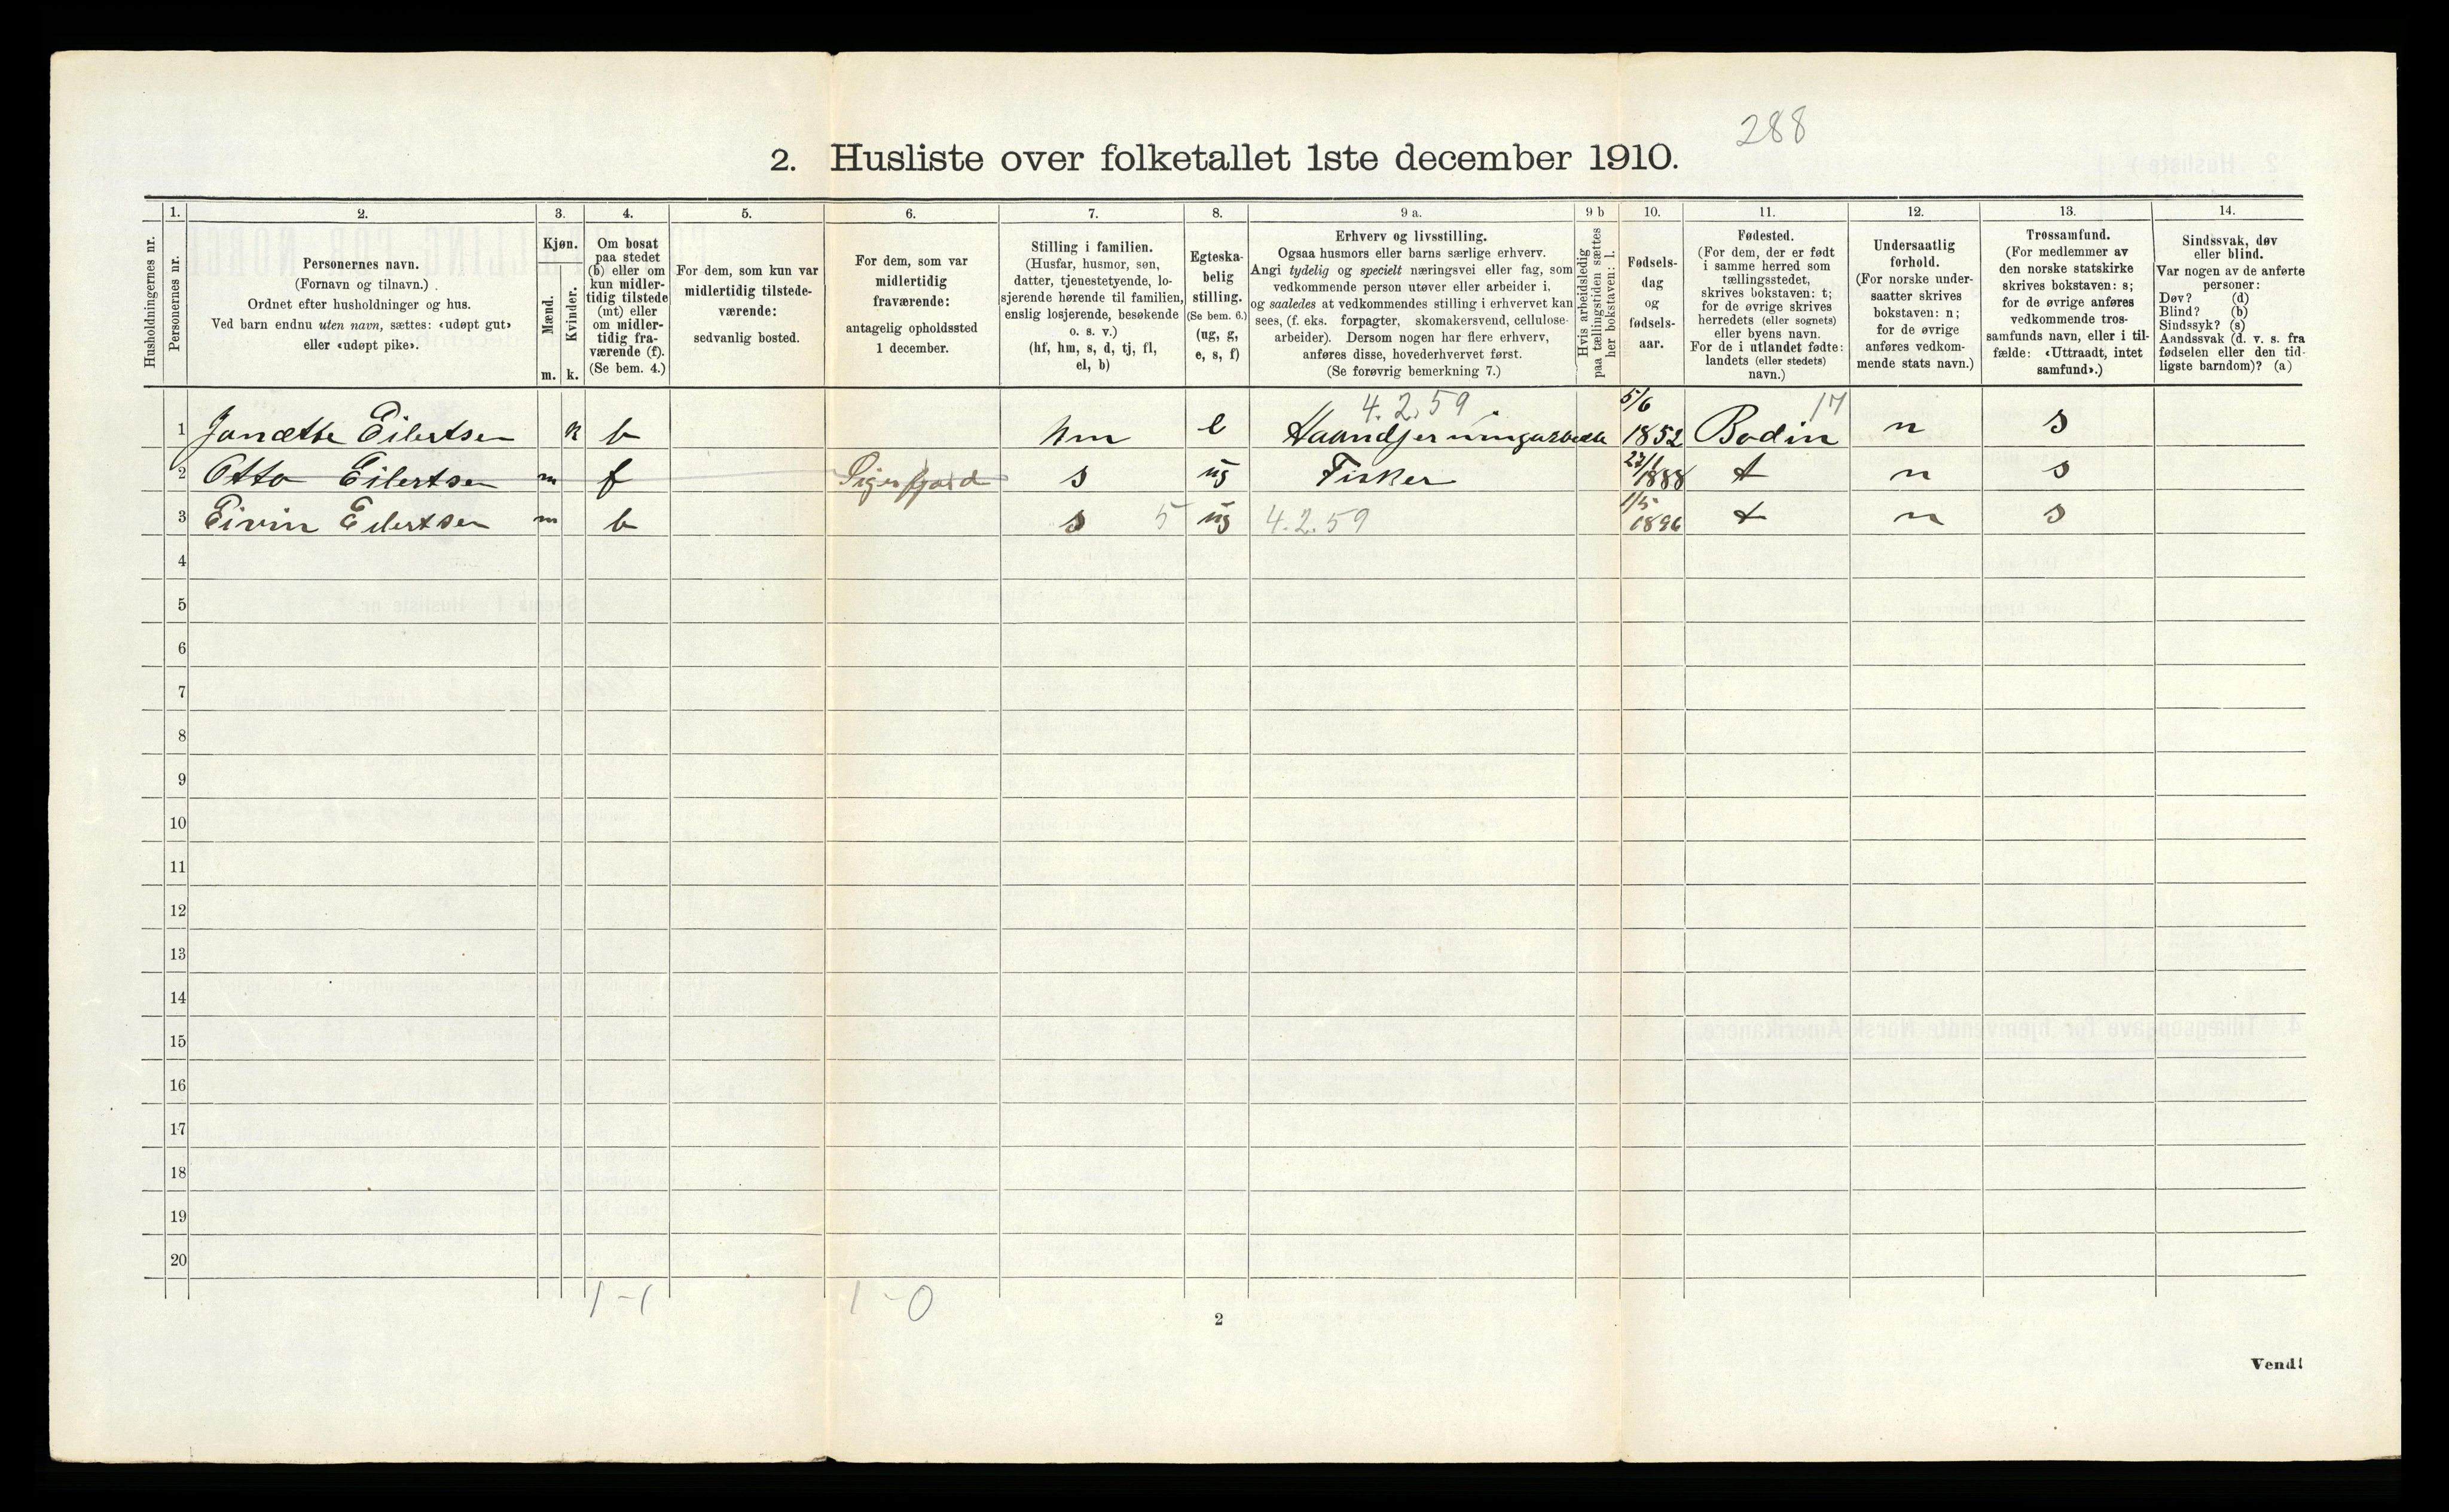 288
2. Husliste over folketallet 1ste december 1910.
Husholdningernes nr.
1.
Personernes nr.
2.
Personernes navn.
(Fornavn og tilnavn.)
Ordnet efter husholdninger og hus.
Ved barn endnu uten navn, sættes: «udøpt gut»
eller «udøpt pike».
3.
Kjøn.
Mænd.
Kvinder.
m. k.
4.
Om bosat
paa stedet
(b) eller om
kun midler-
tidig tilstede
(mt) eller
om midler-
tidig fra-
værende (f).
(Se bem. 4.)
5.
For dem, som kun var
midlertidig tilstede-
værende:
sedvanlig bosted.
6.
For dem, som var
midlertidig
fraværende:
antagelig opholdssted
1 december.
7.
Stilling i familien.
(Husfar, husmor, søn,
datter, tjenestetyende, lo-
sjerende hørende til familien,
enslig losjerende, besøkende
o. s. v.)
(hf, hm, s, d, tj, fl,
el, b)
8.
Egteska-
belig
stilling.
(Se bem. 6.)
(ug, g,
e, s, f)
9 a.
Erhverv og livsstilling.
Ogsaa husmors eller barns særlige erhverv.
Angi tydelig og specielt næringsvei eller fag, som
vedkommende person utøver eller arbeider i,
og saaledes at vedkommendes stilling i erhvervet kan
sees, (f. eks. forpagter, skomakersvend, cellulose-
arbeider). Dersom nogen har flere erhverv,
anføres disse, hovederhvervet først.
(Se forøvrig bemerkning 7.)
9 b
Hvis arbeidsledig
paa tællingstiden sættes
her bokstaven: l.
10.
Fødsels-
dag
og
fødsels-
aar.
11.
Fødested.
(For dem, der er født
i samme herred som
tællingsstedet,
skrives bokstaven: t;
for de øvrige skrives
herredets (eller sognets)
eller byens navn.
For de i utlandet fødte:
landets (eller stedets)
navn.)
12.
Undersaatlig
forhold.
(For norske under-
saatter skrives
bokstaven: n;
for de øvrige
anføres vedkom-
mende stats navn.)
13.
Trossamfund.
(For medlemmer av
den norske statskirke
skrives bokstaven: s;
for de øvrige anføres
vedkommende tros-
samfunds navn, eller i til-
fælde: «Uttraadt, intet
samfund».)
14.
Sindssvak, døv
eller blind.
Var nogen av de anførte
personer:
Døv? (d)
Blind? (b)
Sindssyk? (s)
Aandssvak (d. v. s. fra
fødselen eller den tid-
ligste barndom)? (a)
4.2.59 5/6 17
1 Janætte Eilertsen k b hm e 1852 Bodin n s
2 Otto Eilertsen m f Sigerfjord s ug Fisker 27/1 1888 t n s
3 Eivin Eilertsen m b s 5 ug 4.2.59 1/5 1896 t n s
4
5
6
7
8
9
10
11
12
13
14
15
16
17
18
19
20
1-1 1-0
2
Vend!